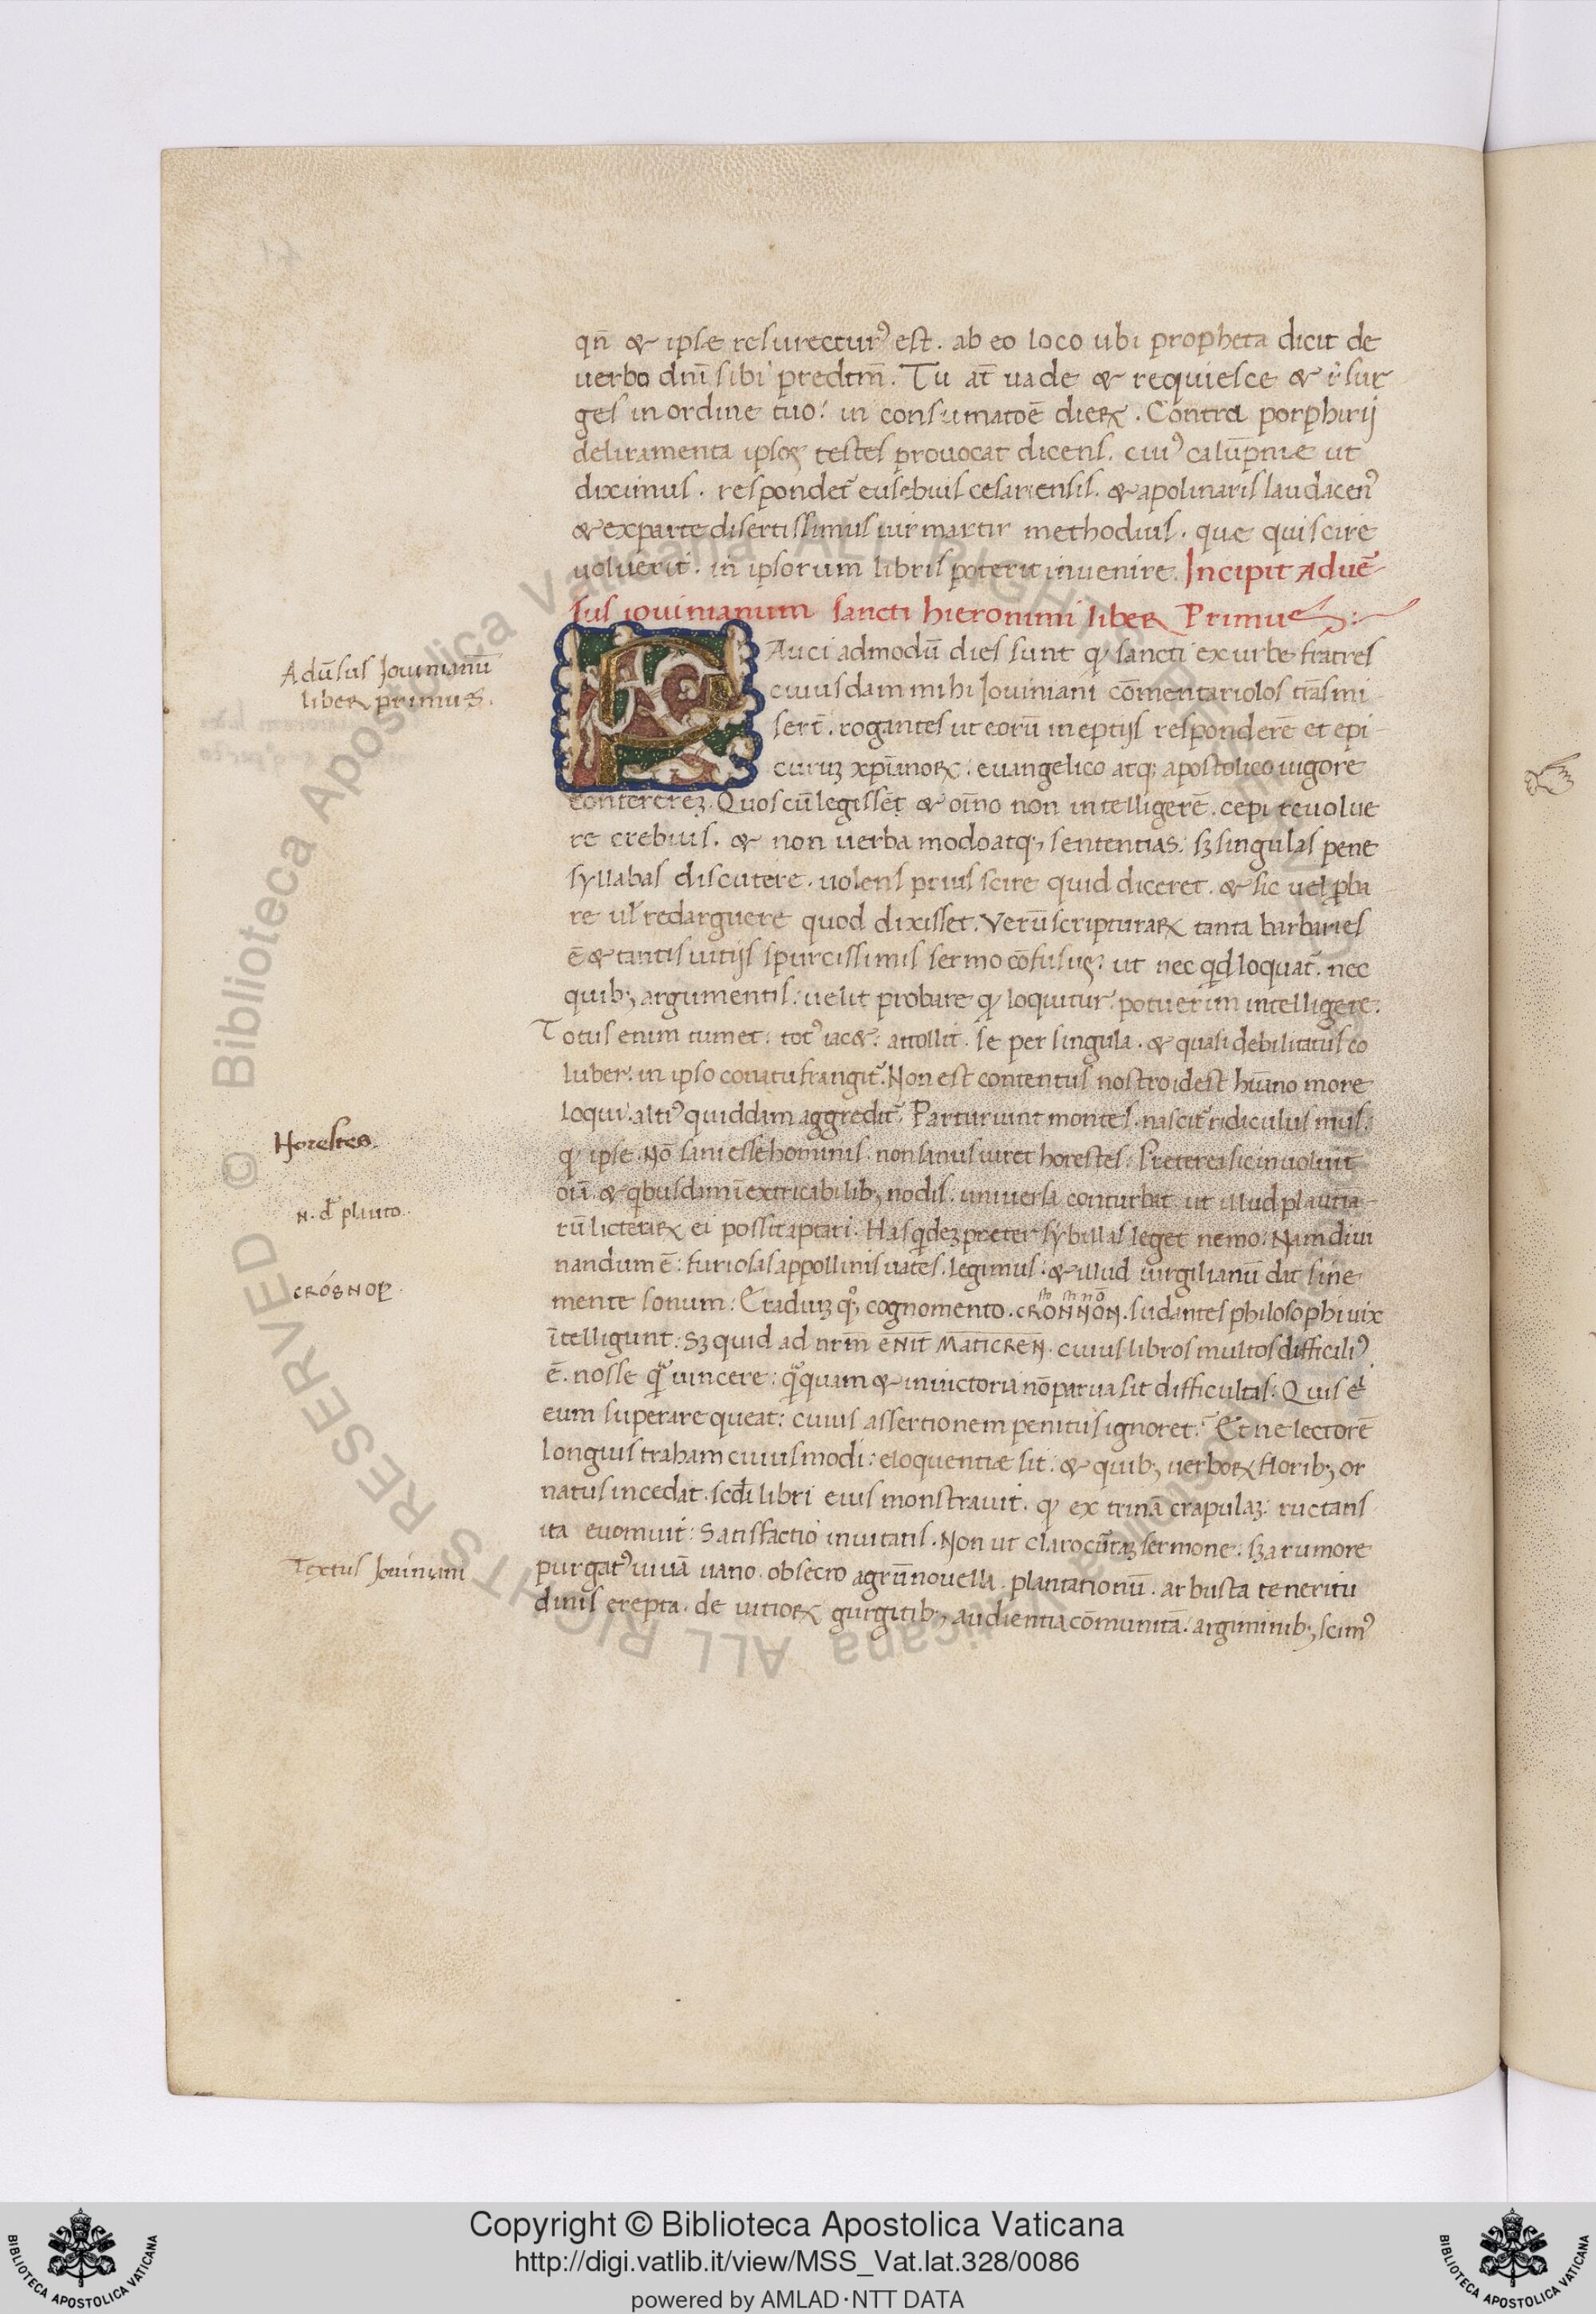 qn̄ & ipse resurectur⁹ est. ab eo loco ubi propheta dicit de
uerbo dn̄i sibi predtm̄. Tu at̄ uade & requiesce & rsur
ges in ordine tuo: in consumatoē dierꝝ. Contra porphirij
deliramenta ipsos testes prouocat dicens. cui⁹ calūpnie ut
diximus. respondet̄ eusebius cesariensis. & apolinaris laudacen⁹
& ex parte disertissimus uir martir methodius. que qui scire
uoluerit. in ipsorum libris poterit inuenire. Incipit Aduē
sus iouinianum sancti hieronimi liber Primus:
PAuci admodū dies sunt ꝙ sancti ex urbe fratres
cuiusdam mihi Jouiniani cōmentariolos trāsmi
sert̄. rogantes ut eorū ineptijs responderē et epi
curuꝫ xpīanorꝝ: euangelico atqꝫ apostolico uigore
contererēꝫ. Quos cū legissēt & oīno non intelligerē. cepi reuolue
re crebius. & non uerba modo atqꝫ sententias: sꝫ singulas pene
syllabas discutere. uolens prius scire quid diceret. & sic uel ꝓba
re uł redarguere quod dixisset. Verū scripturarꝝ tanta barbaries
ē & tantis uitijs spurcissimis sermo cōfusus: ut nec qd loquat̄. nec
quibꝫ argumentis: uelit probare ꝙ loquitur potuerim intelligere:
Totus enim tumet: tot⁹ iac&: attollit se per singula. & quasi debilitatus co
luber: in ipso conatu frangit̄. Non est contentus nostro idest hūano more
loqui. alti⁹ quiddam aggredit̄. Parturiunt montes. nascit̄ ridiculus mus:
ꝙ ipse. Nō sani esse hominis. non sanus iuret horestes: Preterea sic inuoluit
oīa & qbusdam īextricabilibꝫ nodis. uniuersa conturbat: ut illud plautia
rū litterarꝝ ei possit aptari. Has qdeꝫ preter sybillas leget nemo: Nam diui
nandum ē: furiosas appollinis uates. legimus: & illud uirgilianū dat sine
mente sonum: Eraduꝫ qꝫ cognomento. CRONNON. sudantes philosophi uix
ītelligunt: Sꝫ quid ad nrm̄ ENIT MATICREN. cuius libros multos difficili⁹
ē. nosse qͣ uincere: qͣquam & in uictoria nō parua sit difficultas. Quis ē
eum superare queat: cuius assertionem penitus ignoret: Et ne lectorē
longius traham cuiusmodi: eloquentiæ sit: & quibꝫ uerborꝝ floribꝫ or
natus incedat. scdi libri eius monstrauit. ꝙ ex trinā crapulaꝫ ructans
ita euomuit: Satisfactio inuitatis. Non ut claro cūtaꝫ sermone: sꝫ a rumore
purgat⁹ uiuā uano. obsecro agrū nouella plantationū. arbusta teneritu
dinis erepta. de uitiorꝝ gurgitibꝫ, audientia cōmunitā. argiminibꝫ, scim⁹
Adūsus Jouinianū
liber primus.
Horestes.
N. d̄ plauto.
Textus Jouiniani
Copyright © Biblioteca Apostolica Vaticana
http://digi.vatlib.it/view/MSS_Vat.lat.328/0086
powered by AMLAD·NTT DATA